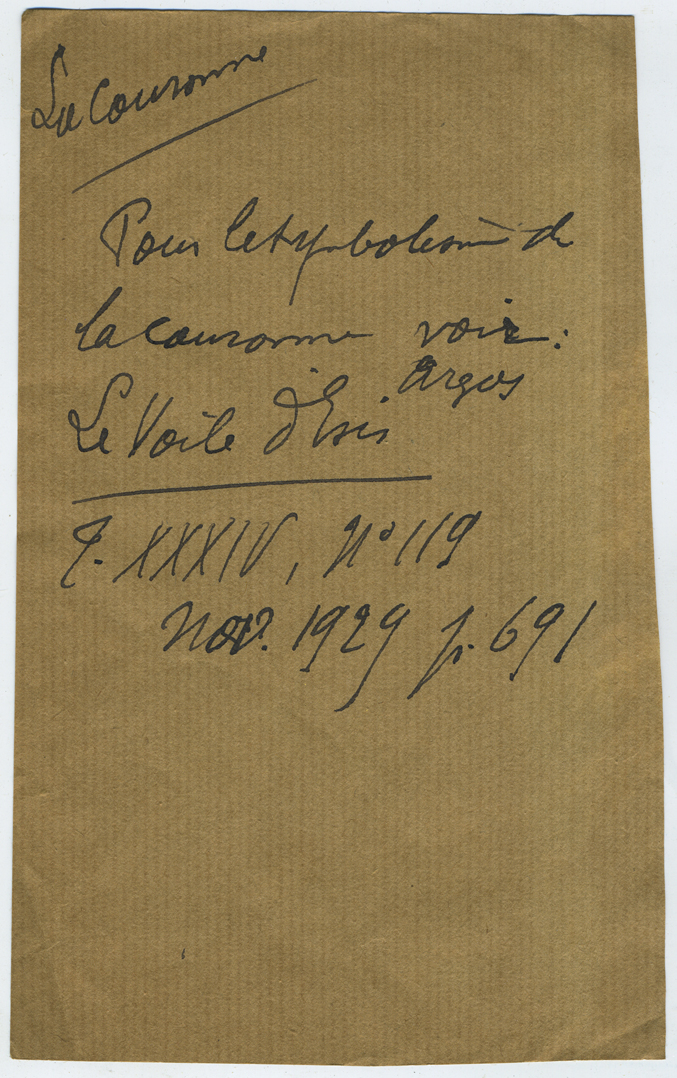 La couronne
Pour le symbolisme de
la couronne voir :
Argos
Le Voile d'Isis
T. XXXIV, N° 119
Nov. 1929 p. 691